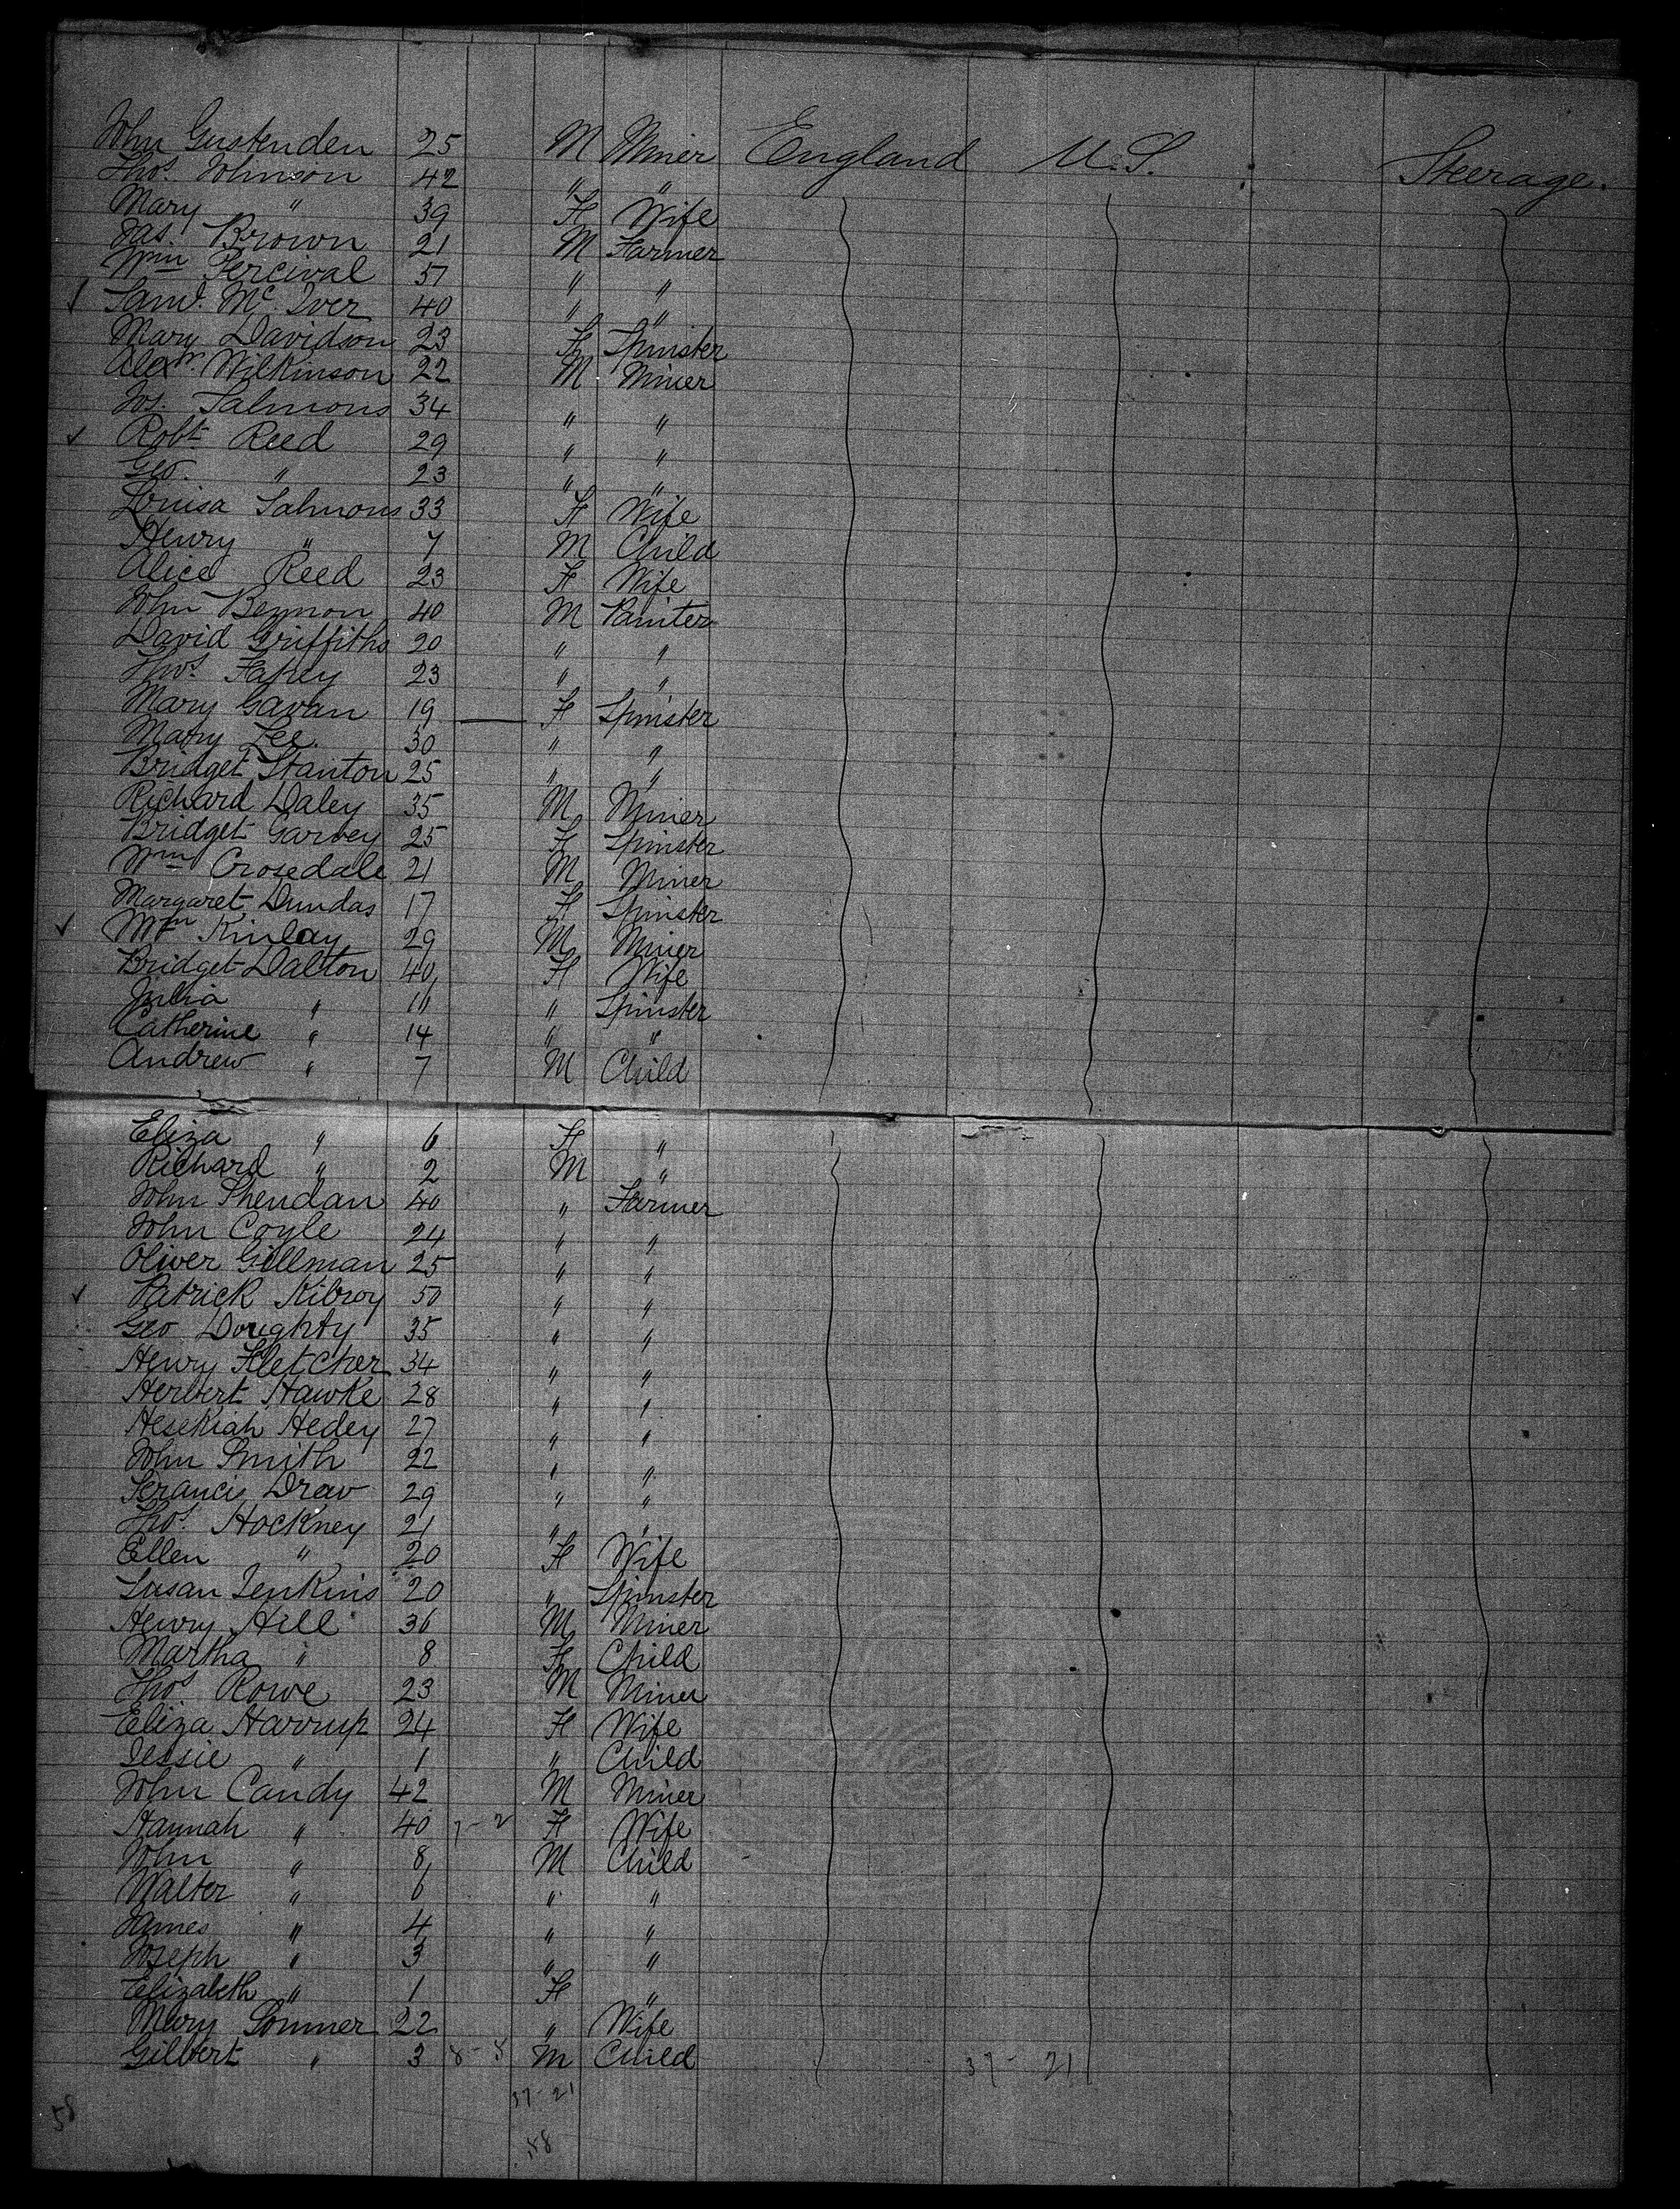 John Gustenden 25 M Miner England U.S. Steerage.
Thos. Johnson 42 " "
Mary " 39 F Wife
Jas. Brown 21 M Farmer
Wm Percival 57 " "
✓ Saml. McIver 40 " "
Mary Davidson 23 F Spinster
Alexr. Wilkinson 22 M Miner
Jos. Salmons 34 " "
✓ Robt Reed 29 " "
Geo. " 23 " "
Louisa Salmons 33 F Wife
Henry " 7 M Child
Alice Reed 23 F Wife
John Beynon 40 M Painter
David Griffiths 20 " "
Thos. Fahey 23 " "
Mary Gavan 19 — F Spinster
Mary Lee. 30 " "
Bridget Stanton 25 " "
Richard Daley 35 M Miner
Bridget Garvey 25 F Spinster
Wm Crosedale 21 M Miner
Margaret Dundas 17 F Spinster
✓ Wm Kinlay 29 M Miner
Bridget Dalton 40 F Wife
Julia " 11 " Spinster
Catherine " 14 " "
Andrew " 7 M Child
Eliza " 6 F "
Richard " 2 M "
John Sheridan 40 " Farmer
John Coyle 24 " "
Oliver Gillman 25 " "
✓ Patrick Kilroy 50 " "
Geo Doughty 35 " "
Henry Fletcher 34 " "
Herbert Hawke 28 " "
Hesekiah Hedey 27 " "
John Smith 22 " "
Francis Drew 29 " "
Thos. Hockney 21 " "
Ellen " 20 F Wife
Susan Jenkins 20 " Spinster
Henry Hill 36 M Miner
Martha " 8 F Child
Thos Rowe 23 M Miner
Eliza Harrup 24 F Wife
Jessie " 1 " Child
John Candy 42 M Miner
Hannah " 40 7-2 F Wife
John " 8 M Child
Walter " 6 " "
James " 4 " "
Joseph " 3 " "
Elizabeth " 1 F "
Mary Sommer 22 " Wife
Gilbert " 3 8-8 M Child 37-21
37-21
58
58